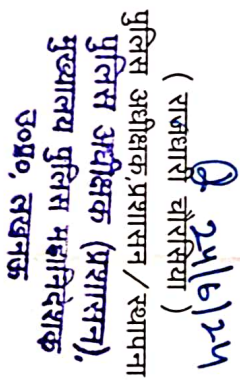 24/6/24
( राजधारी चौरसिया )
पुलिस अधीक्षक,प्रशासन / स्थापना
पुलिस अधीक्षक (प्रशासन),
मुख्यालय पुलिस महानिदेशक
उ०प्र०, लखनऊ